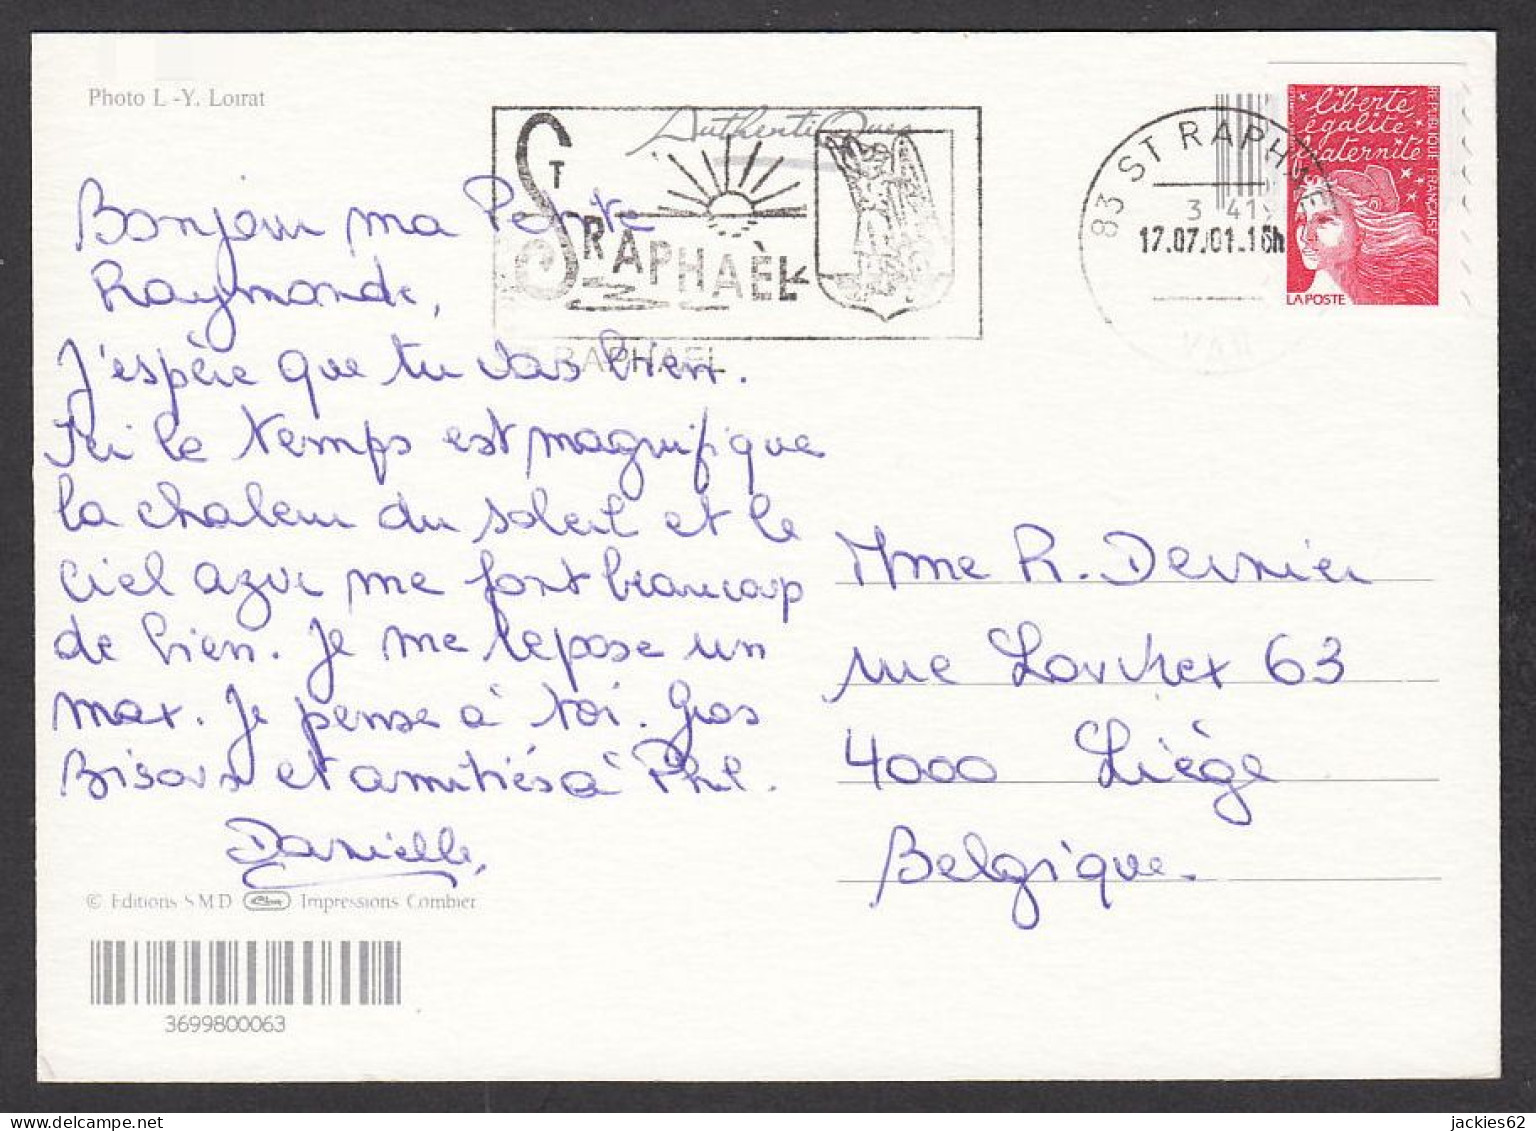 Photo L-Y. Loirat
AuthentiQues
ST RAPHAËL
83 ST RAPHAEL
3 41
17.07.01.16h
liberté
égalité
fraternité
REPUBLIQUE FRANÇAISE
LA POSTE
RAPHAEL
Bonjour ma Petite
Raymonde,
J'espère que tu vas bien.
Ici le temps est magnifique
la chaleur du soleil et le
ciel azur me font beaucoup
de bien. Je me repose un
max. Je pense à toi. Gros
Bisous et amitiés à Phil.
Danielle,
Mme R. Dernier
rue 63
4000 Liège
Belgique.
© Editions SMD Impressions Combier
3699800063
delcampe.net
jackies62